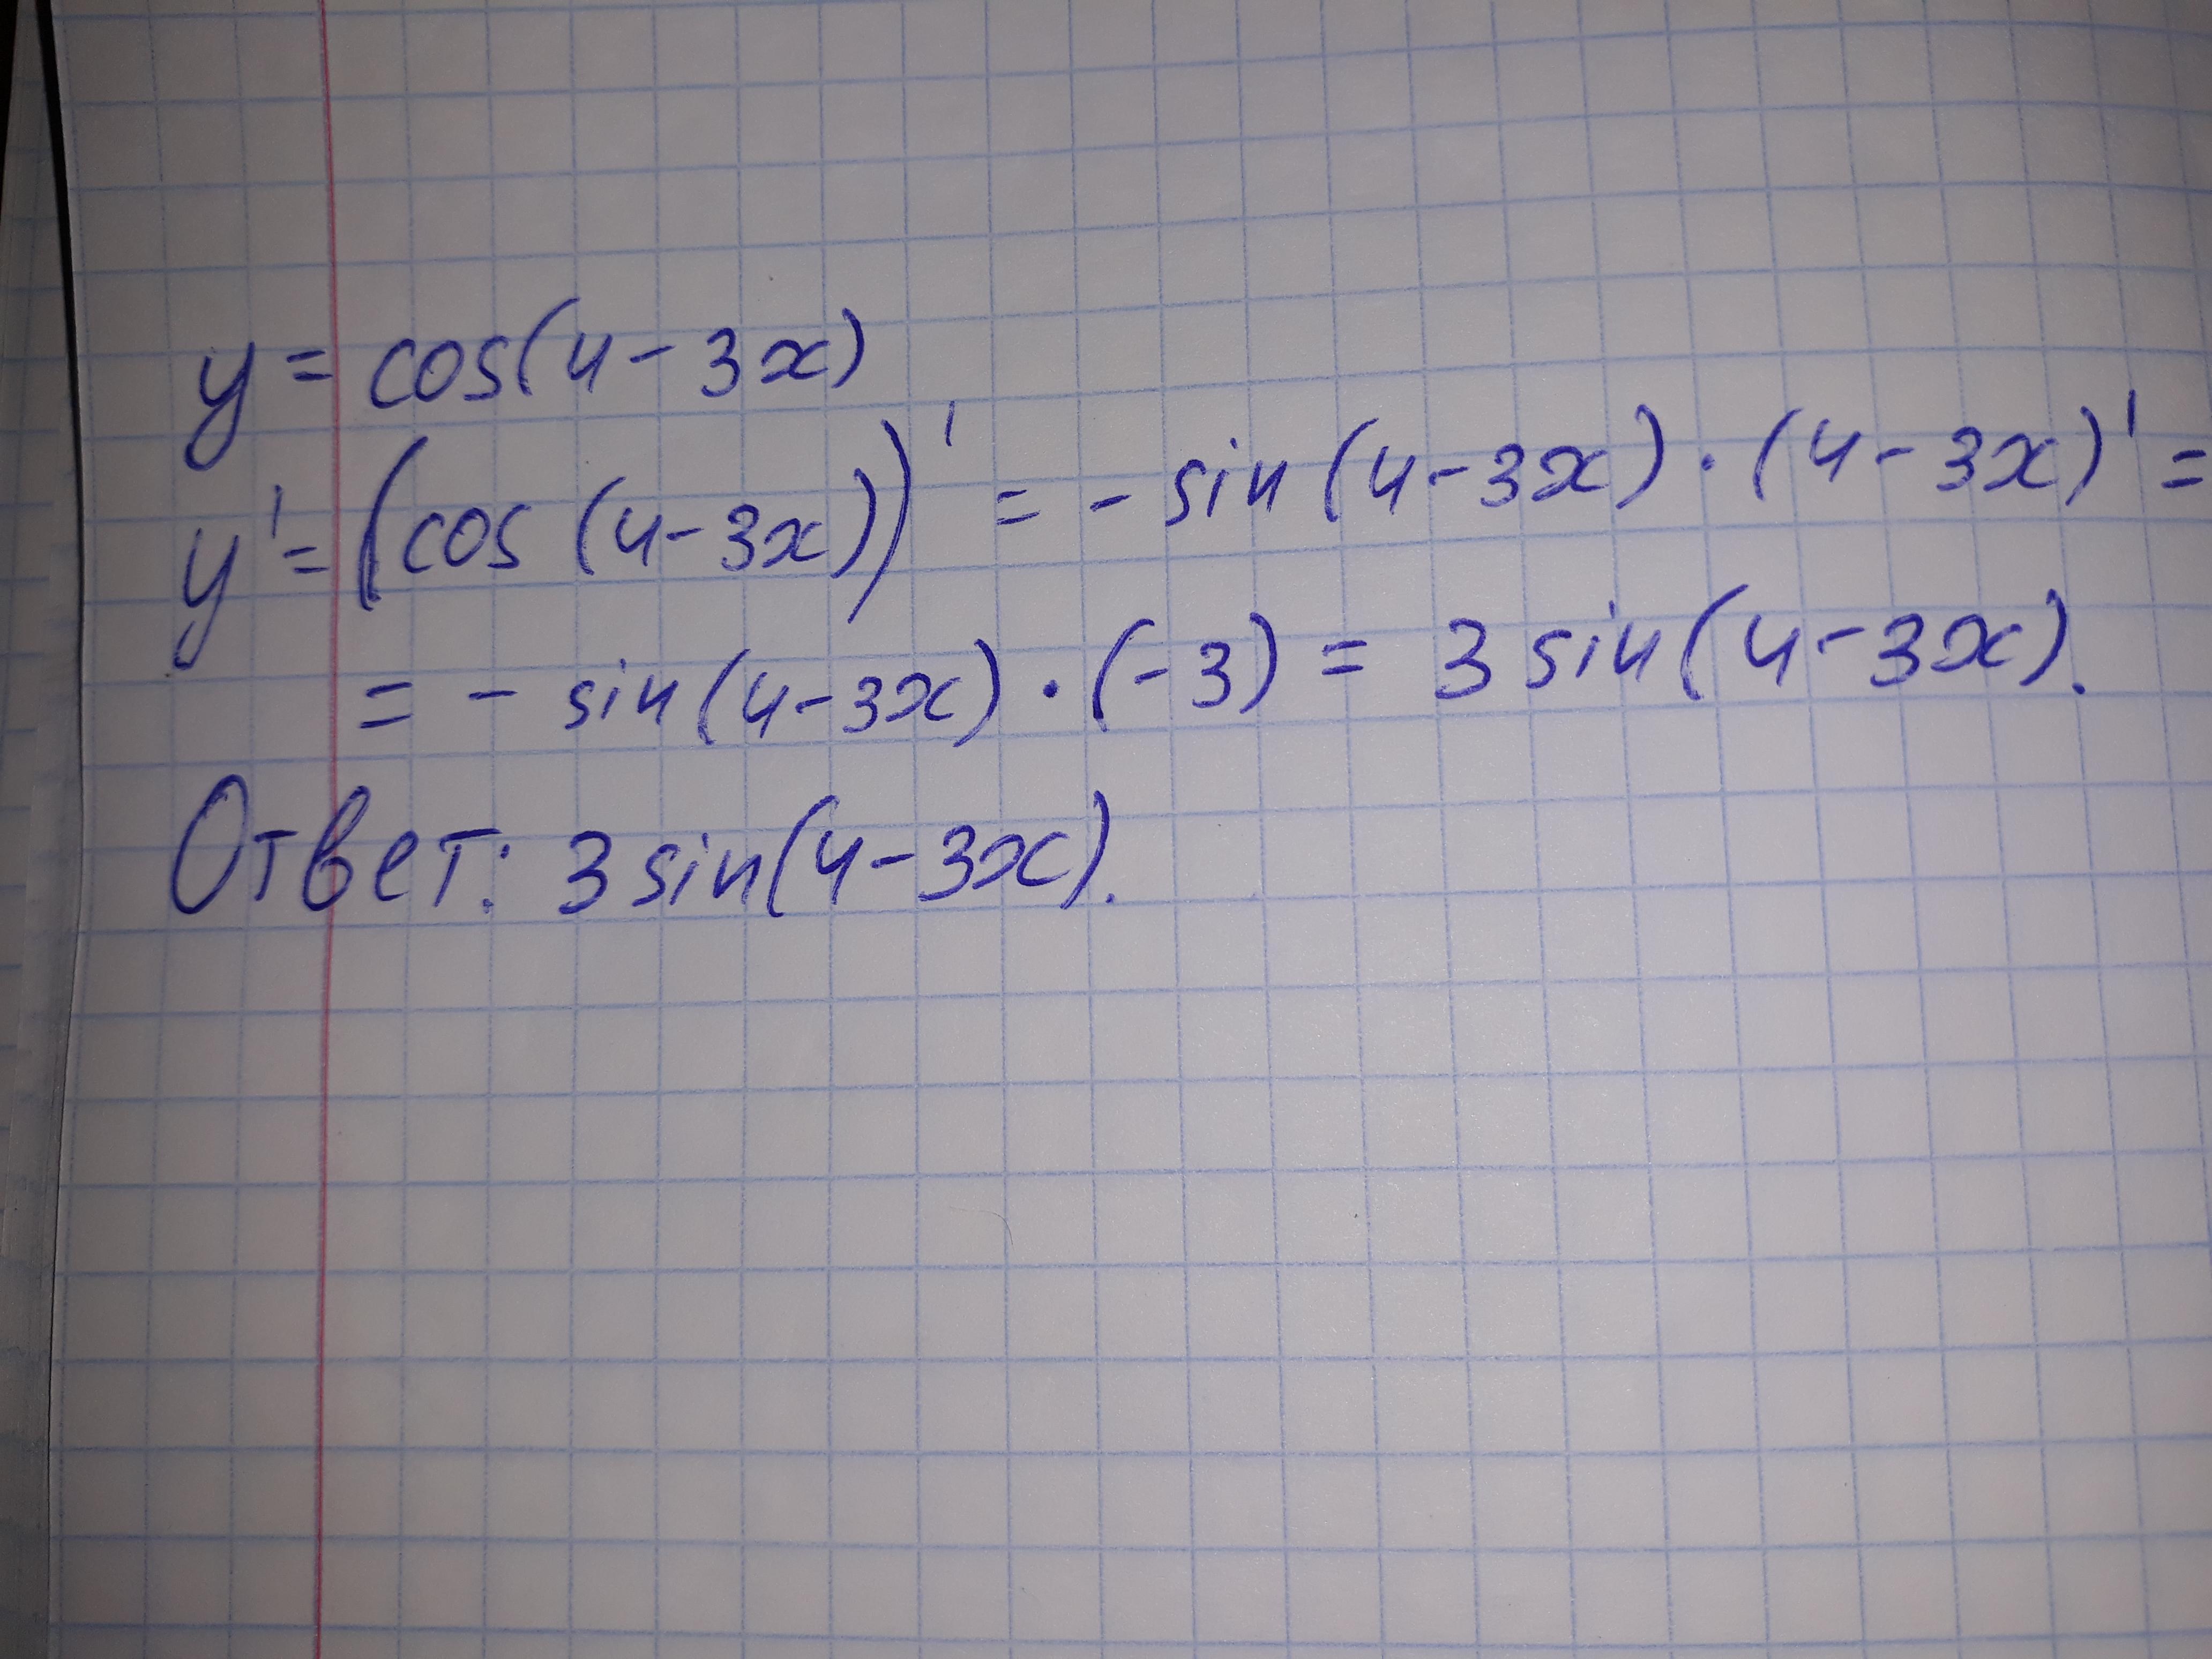 y = cos(4-3x)
y' = (cos (4-3x))' = - sin (4-3x) · (4-3x)' =
= - sin(4-3x) · (-3) = 3 sin(4-3x).
Ответ: 3 sin(4-3x).